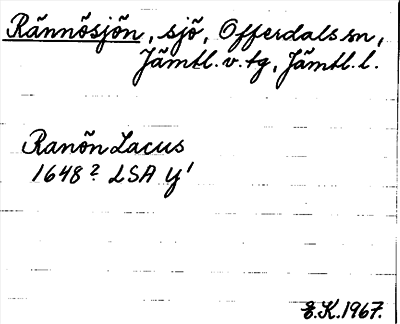 Rännösjön, sjö, Offerdals sn,
Jämtl. v. tg, Jämtl. l.
Ranön Lacus
1648? LSA y¹
E.K. 1967.